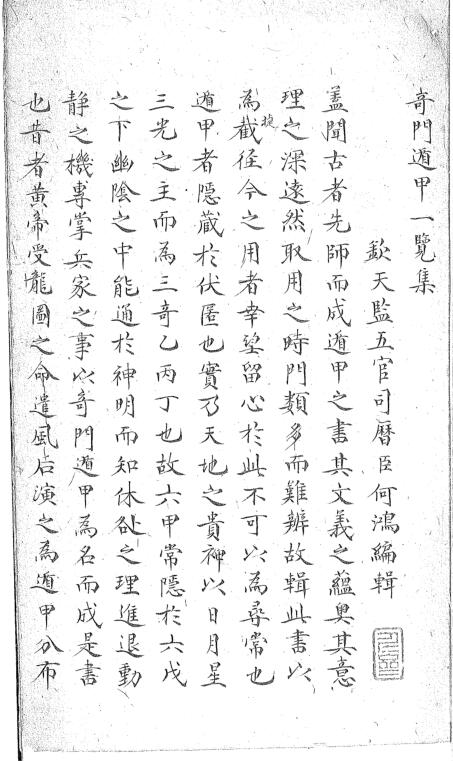 奇門遁甲一覽集
欽天監五官司曆臣何鴻編輯
蓋聞古者先師而成遁甲之書其文義之蘊奥其意
理之深遠然取用之時門類多而難辨故輯此書以
為截捷徑今之用者幸望留心於此不可以為尋常也
遁甲者隠藏於伏匿也實乃天地之貴神以日月星
三光之主而為三奇乙丙丁也故六甲常隠於六戊
之下幽陰之中能通於神明而知休咎之理進退動
静之機專掌兵家之事以奇門遁甲為名而成是書
也昔者黄帝受龍圖之命遣風后演之為遁甲分布